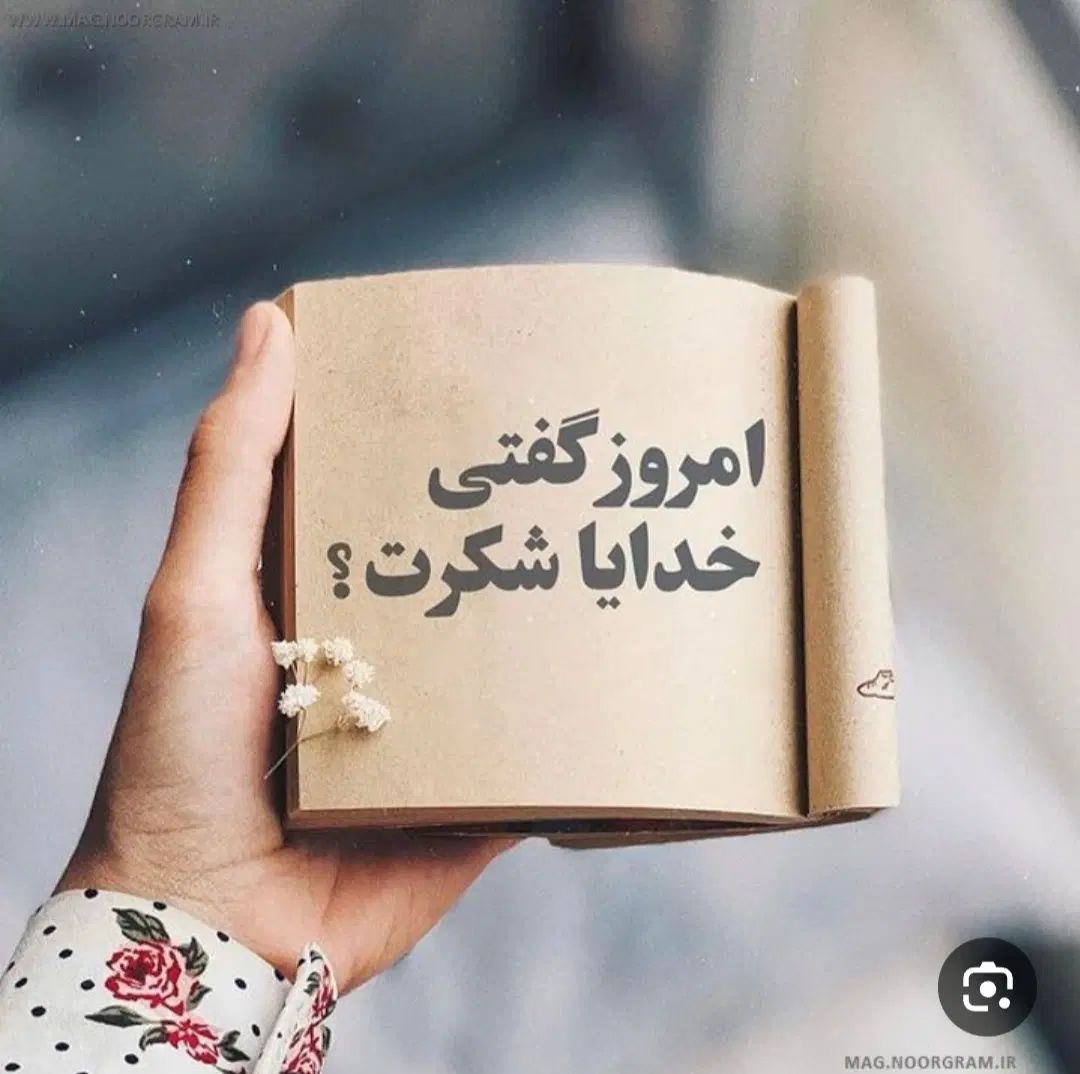 WWW.MAG.NOORGRAM.IR
امروز گفتی
خدایا شکرت ؟
MAG.NOORGRAM.IR